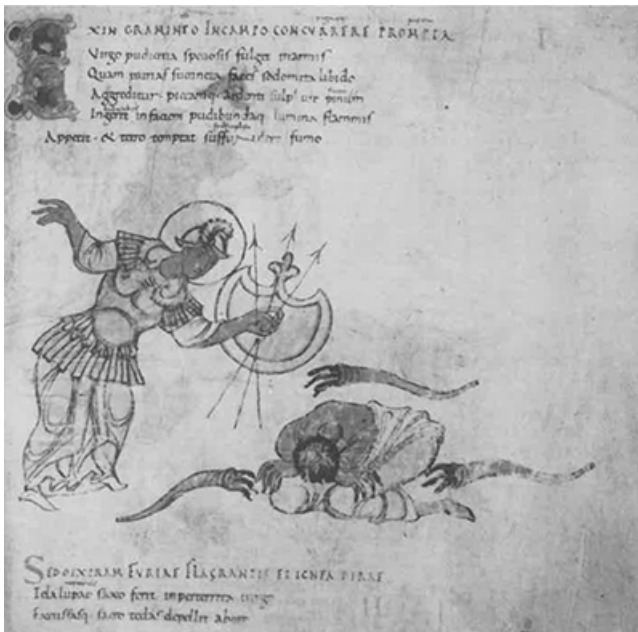 EXIN GRAMINEO IN CAMPO CONCVRRERE PROMPTA
Virgo pudicitia speciosis fulget in armis
Quam patrias succincta faces sodomita libido
Aggreditur piceamq; ardenti pinum
Ingerit in faciem pudibundaq; lumina flammis
Appetit & tetro temptat fumo
SED DEXTRAM FVRIAE FLAGRANTIS ET IGNEA DIRAE
Tela lupae saxo ferit inperterrita virgo
Excussasq; sacro tedas depellit abore